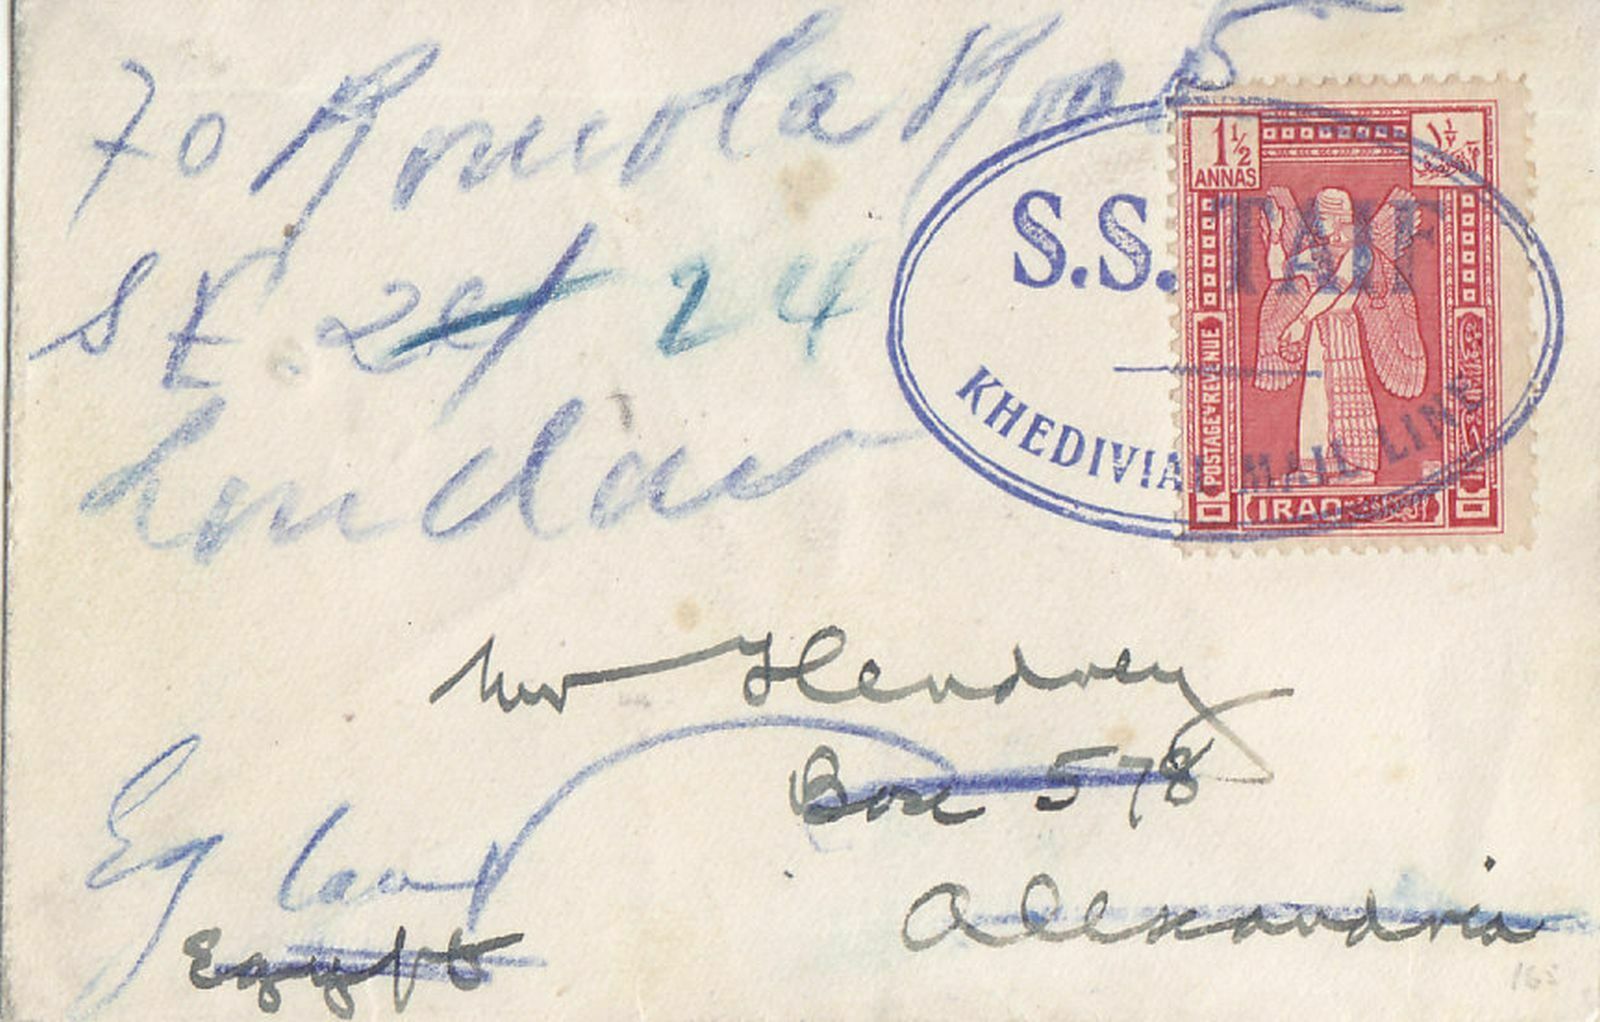 70 Romola Road
S E. 24 24
London
S.S. TAIF
KHEDIVIAL MAIL LINE
1½
ANNAS
POSTAGE & REVENUE
IRAQ
Mr Hendrey
Box 578
Alexandria
Egypt